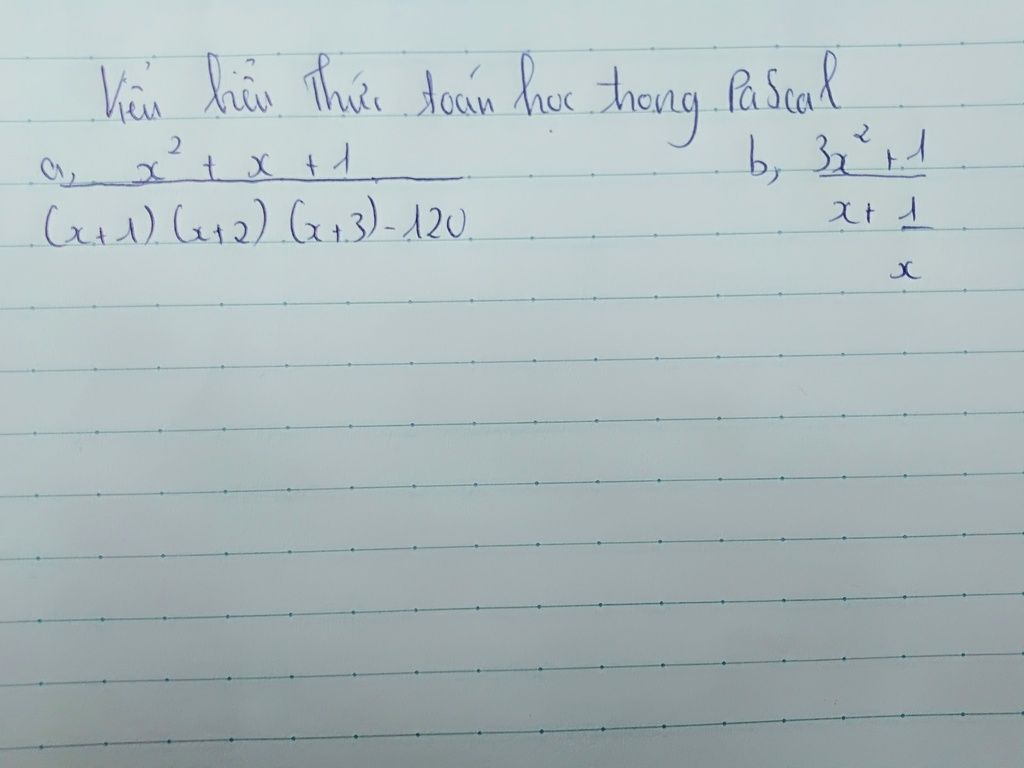 Viểu biểu thức toán học trong PaScal
a, x² + x + 1
(x+1) (x+2) (x+3) - 120
b, 3x² + 1
x + 1
x